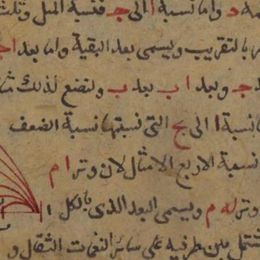 د واما نسبة ا الى ج فنسبة المثل وثلث
بالتقريب ويسمى بعد البقية واما بعد اج
ج وبعد اب بعد ب ولنضع لذلك
نسبة ا الى ج التى نسبتها نسبة الضعف
نسبة الاربع الامثال لان وتر ام
وتر له م ويسمى البعد الذى بالكل
من طرفيه على سائر النغمات الثقال و